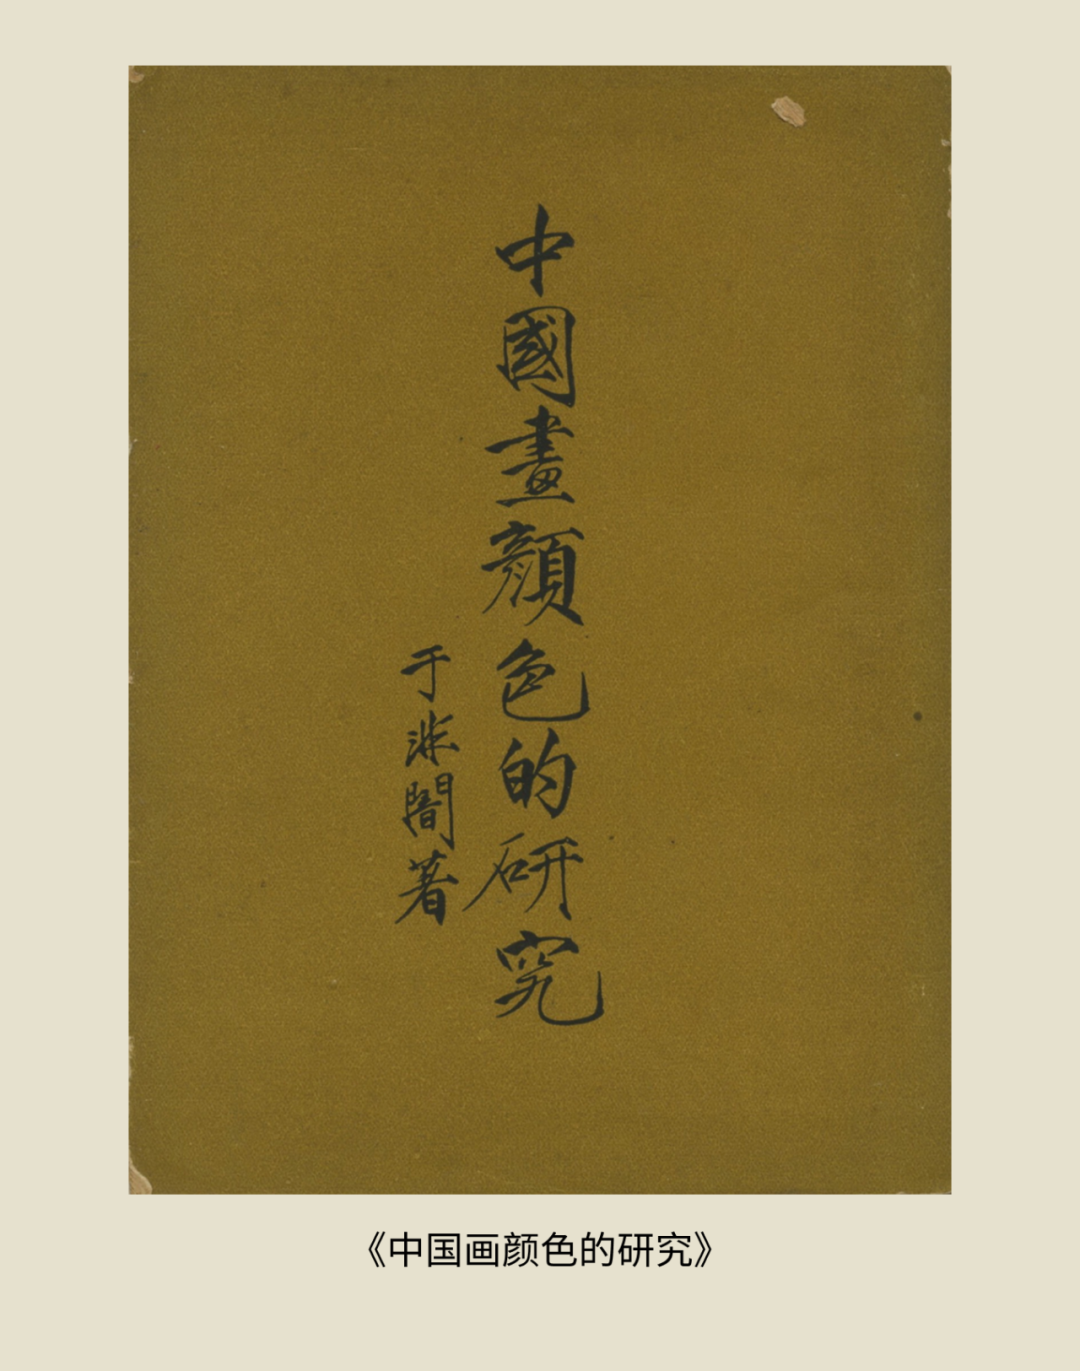 中國畫顏色的研究
于非闇著
《中国画颜色的研究》